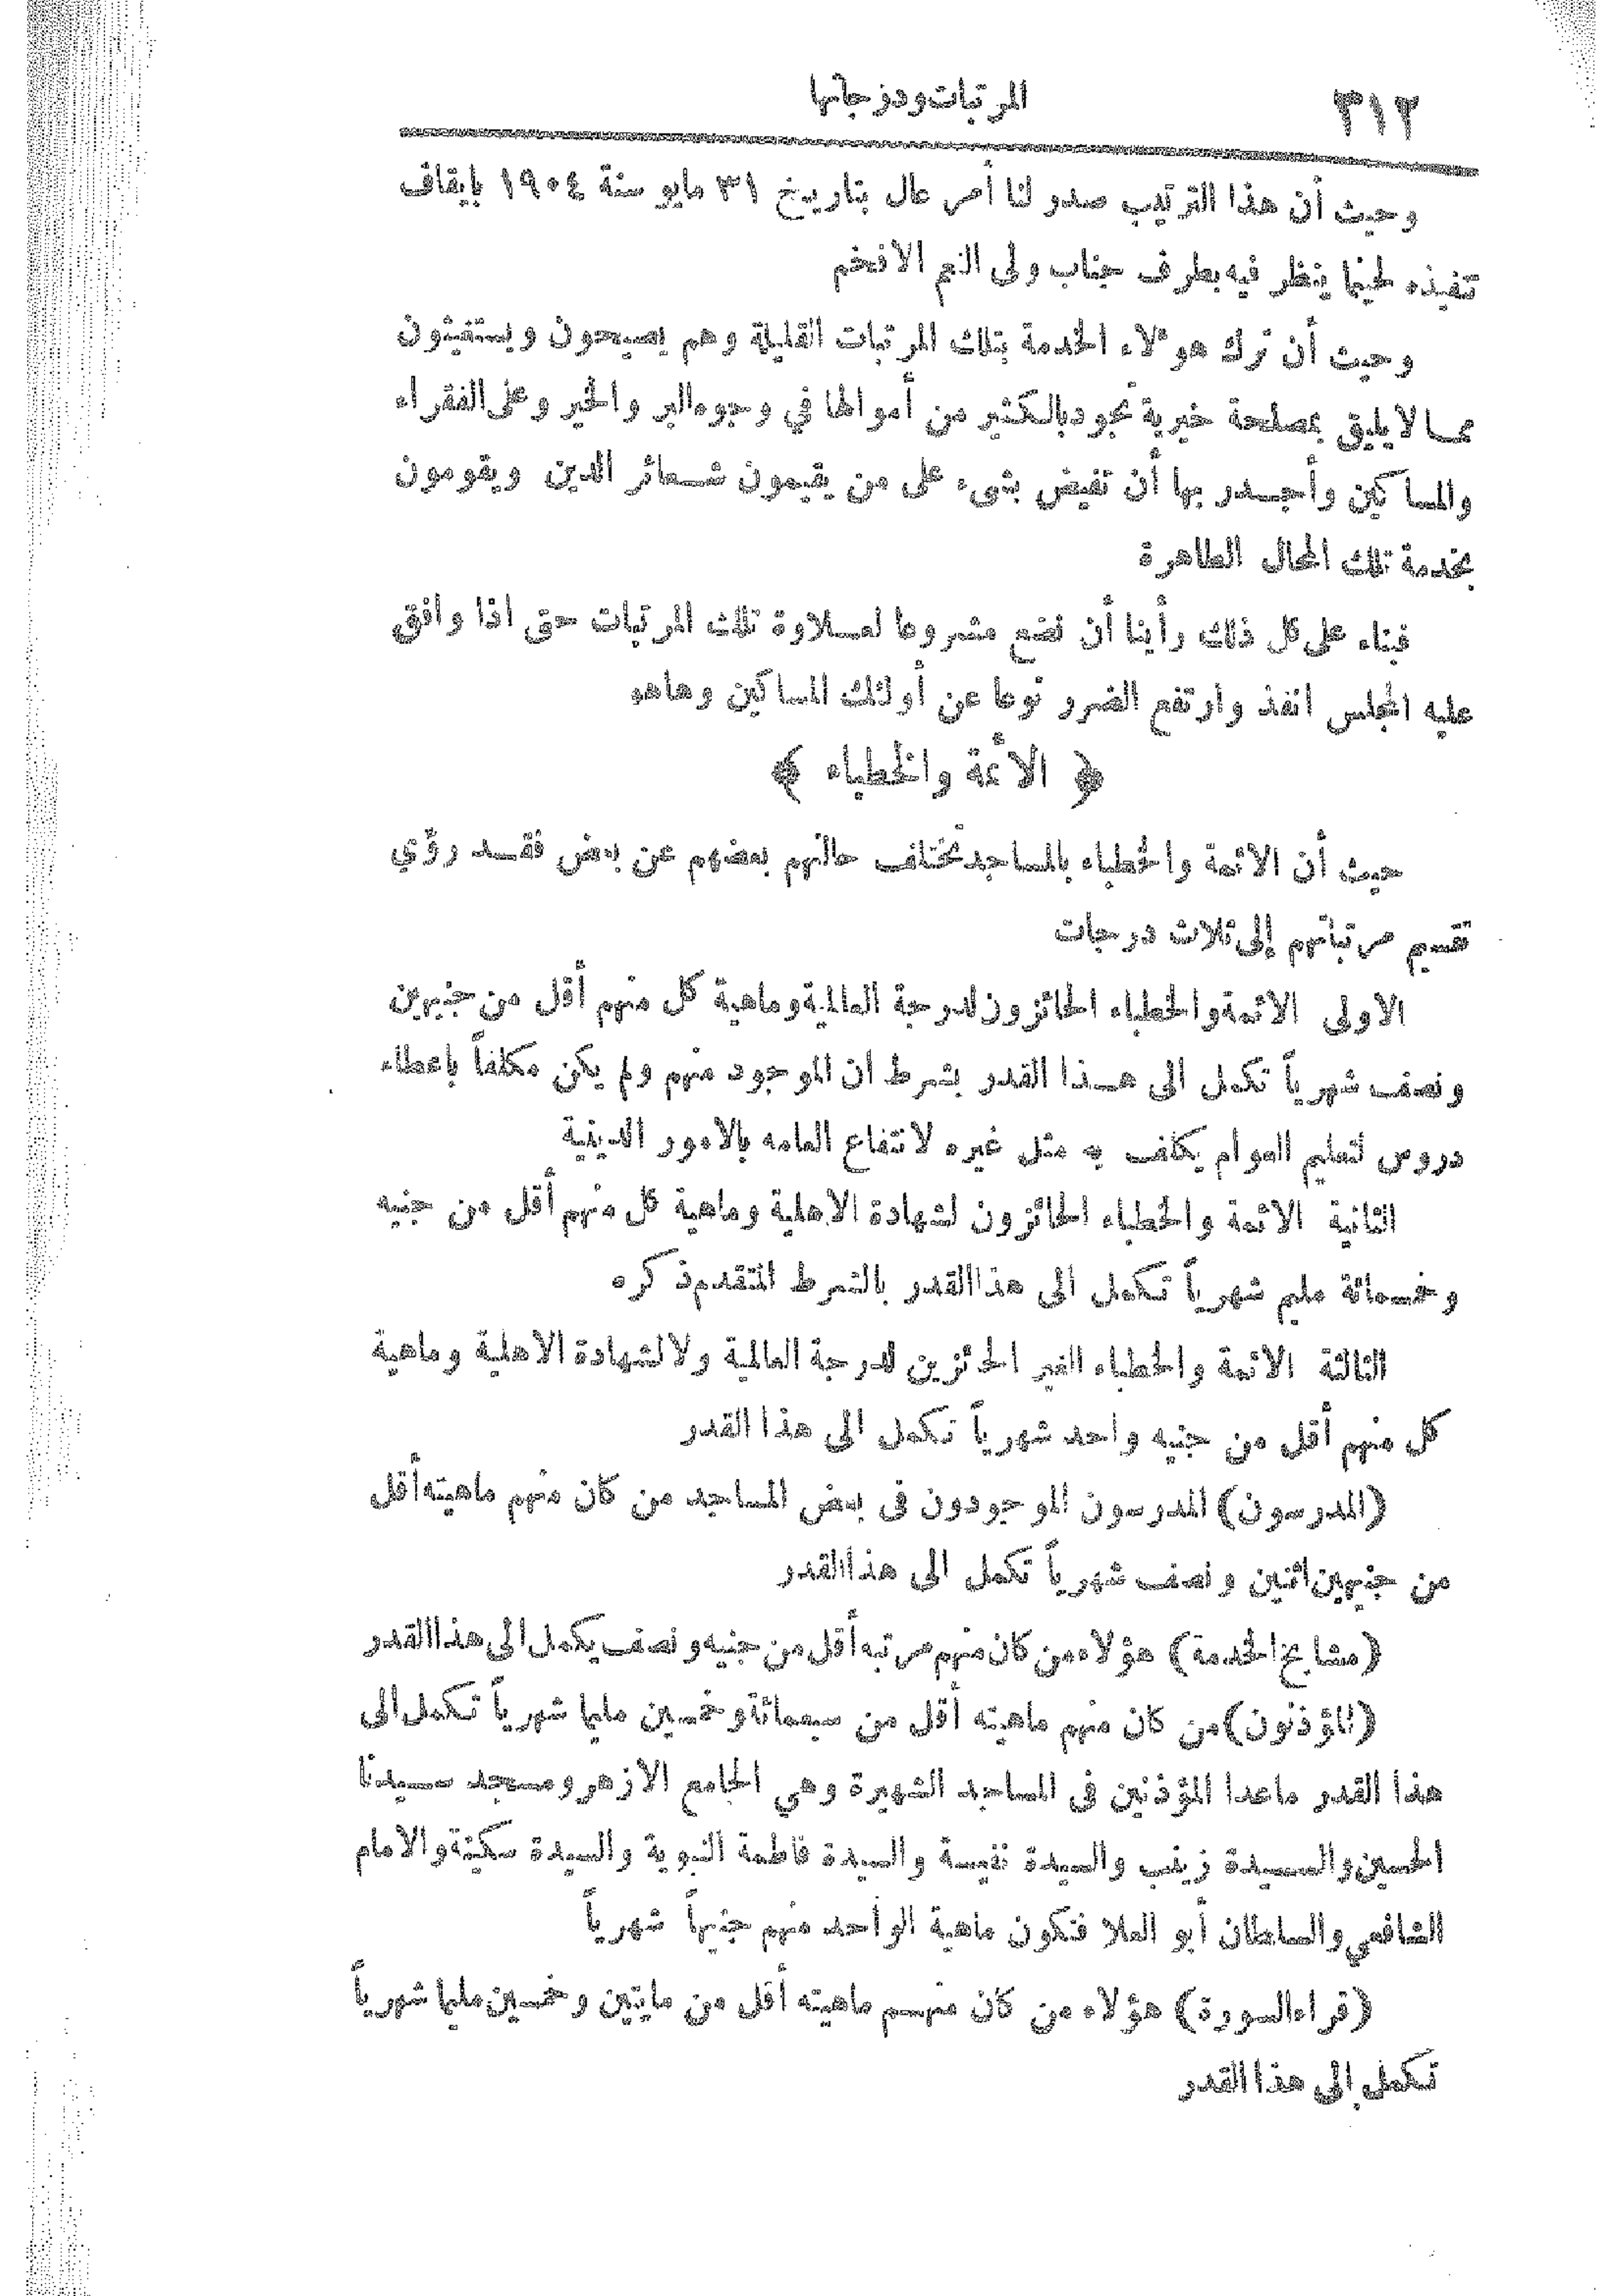 ٣١٢ المرتبات ودرجاتها
وحيث أن هذا الترتيب صدر لنا أمر عال بتاريخ ٣١ مايو سنة ١٩٠٤ بايقاف
تنفيذه لحينما ينظر فيه بطرف جناب ولى النعم الافخم
وحيث أن ترك هوٴلاء الخدمة بتلك المرتبات القليلة وهم يصيحون ويستغيثون
مما لا يليق بمصلحة خيرية تجود بالكثير من أموالها في وجوه البر والخير وعلى الفقراء
والمساكين وأجدر بها أن تفيض بشىء على من يقيمون شعائر الدين ويقومون
بخدمة تلك المحال الطاهرة
فبناء على كل ذلك رأينا أن نضع مشروعا لعلاوة تلك المرتبات حتى اذا وافق
عليه المجلس انفذ وارتفع الضرر نوعا عن أولئك المساكين وهاهو
﴿ الائمة والخطباء ﴾
حيث أن الائمة والخطباء بالمساجد تختلف حالتهم بعضهم عن بعض فقد روٴي
تقسيم مرتباتهم إلى ثلاث درجات
الاولى الائمة والخطباء الحائزون لدرجة العالمية وماهية كل منهم أقل من جنيهين
ونصف شهرياً تكمل الى هذا القدر بشرط ان الموجود منهم ولم يكن مكلفاً باعطاء
دروس لتعليم العوام يكلف به مثل غيره لانتفاع العامه بالامور الدينية
الثانية الائمة والخطباء الحائزون لشهادة الاهلية وماهية كل منهم أقل من جنيه
وخمسمائة مليم شهرياً تكمل الى هذا القدر بالشرط المتقدم ذكره
الثالثة الائمة والخطباء الغير الحائزين لدرجة العالمية ولا لشهادة الاهلية وماهية
كل منهم أقل من جنيه واحد شهرياً تكمل الى هذا القدر
(المدرسون) المدرسون الموجودون فى بعض المساجد من كان منهم ماهيته أقل
من جنيهين اثنين ونصف شهرياً تكمل الى هذا القدر
(مشايخ الخدمة) هؤلاء من كان منهم مرتبه أقل من جنيه ونصف يكمل الى هذا القدر
(المؤذنون) من كان منهم ماهيته أقل من سبعمائة وخمسين مليما شهرياً تكمل الى
هذا القدر ماعدا المؤذنين فى المساجد الشهيرة وهي الجامع الازهر ومسجد سيدنا
الحسين والسيدة زينب والسيدة نفيسة والسيدة فاطمة النبوية والسيدة سكينة والامام
الشافعي والسلطان أبو العلا فتكون ماهية الواحد منهم جنيهاً شهرياً
(قراء السورة) هؤلاء من كان منهم ماهيته أقل من مايتين وخمسين مليما شهرياً
تكمل إلى هذا القدر